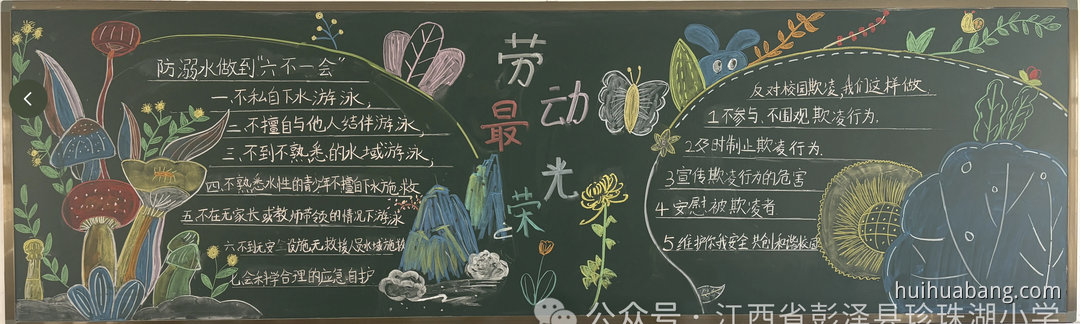 防溺水做到"六不一会"
一.不私自下水游泳,
二.不擅自与他人结伴游泳,
三.不到不熟悉的水域游泳,
四.不熟悉水性的青少年不擅自下水施救
五.不在无家长或教师带领的情况下游泳
六.不到无安全设施、无救援人员水域游
七.会科学合理的应急自护
劳动
最
光
荣
反对校园欺凌,我们这样做.
1不参与、不围观欺凌行为.
2及时制止欺凌行为.
3宣传欺凌行为的危害
4安慰被欺凌者
5维护你我安全共创和谐校园
huihuabang.com
公众号·江西省彭泽县珍珠湖小学